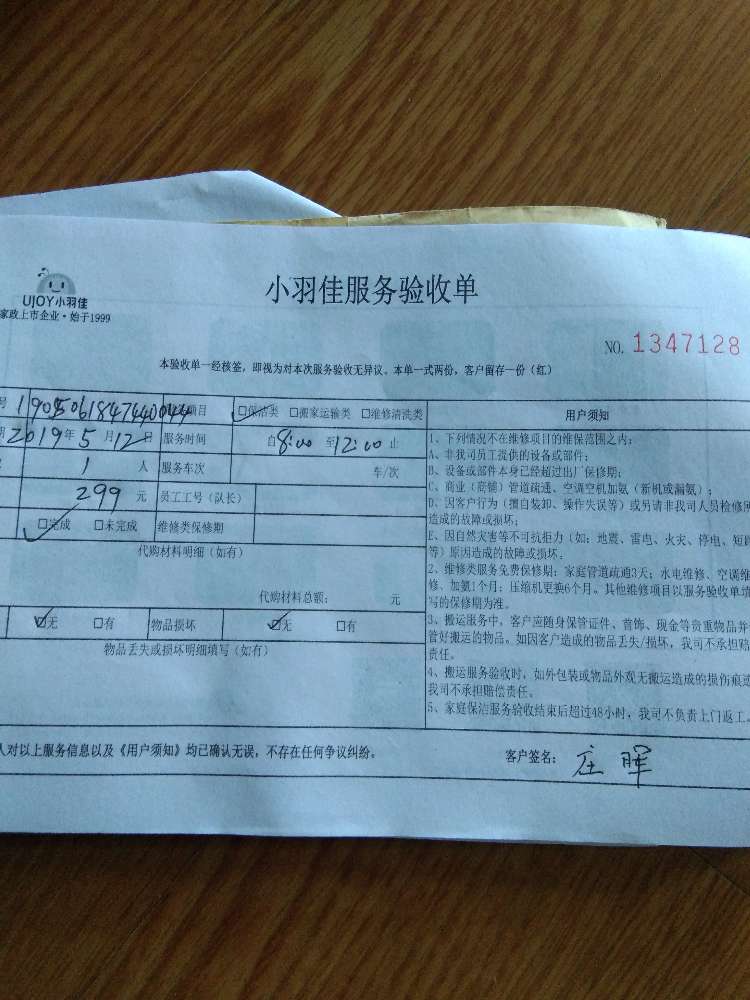 UJOY小羽佳
家政上市企业·始于1999
小羽佳服务验收单
NO. 1347128
本验收单一经核签，即视为对本次服务验收无异议。本单一式两份，客户留存一份（红）
号 项目 □保洁类 □搬家运输类 □维修清洗类
2019年5月12日 服务时间 自8:00至12:00止
1 人 服务车次 车/次
299 元 员工工号（队长）
□完成 □未完成 维修类保修期
代购材料明细（如有）
代购材料总额： 元
□无 □有 物品损坏 □无 □有
物品丢失或损坏明细填写（如有）
用户须知
1、下列情况不在维修项目的维保范围之内：
A、非我司员工提供的设备或部件；
B、设备或部件本身已经超过出厂保修期；
C、商业（商铺）管道疏通、空调空机加氨（新机或漏氨）；
D、因客户行为（擅自装卸、操作失误等）或另请非我司人员检修
造成的故障或损坏；
E、因自然灾害等不可抗拒力（如：地震、雷电、火灾、停电、短路
等）原因造成的故障或损坏。
2、维修类服务免费保修期：家庭管道疏通3天；水电维修、空调维
修、加氨1个月；压缩机更换6个月。其他维修项目以服务验收单填
写的保修期为准。
3、搬运服务中，客户应随身保管证件、首饰、现金等贵重物品并
管好搬运的物品。如因客户造成的物品丢失/损坏，我司不承担赔
责任。
4、搬运服务验收时，如外包装或物品外观无搬运造成的损伤痕迹
我司不承担赔偿责任。
5、家庭保洁服务验收结束后超过48小时，我司不负责上门返工。
人对以上服务信息以及《用户须知》均已确认无误，不存在任何争议纠纷。
客户签名： 庄晖